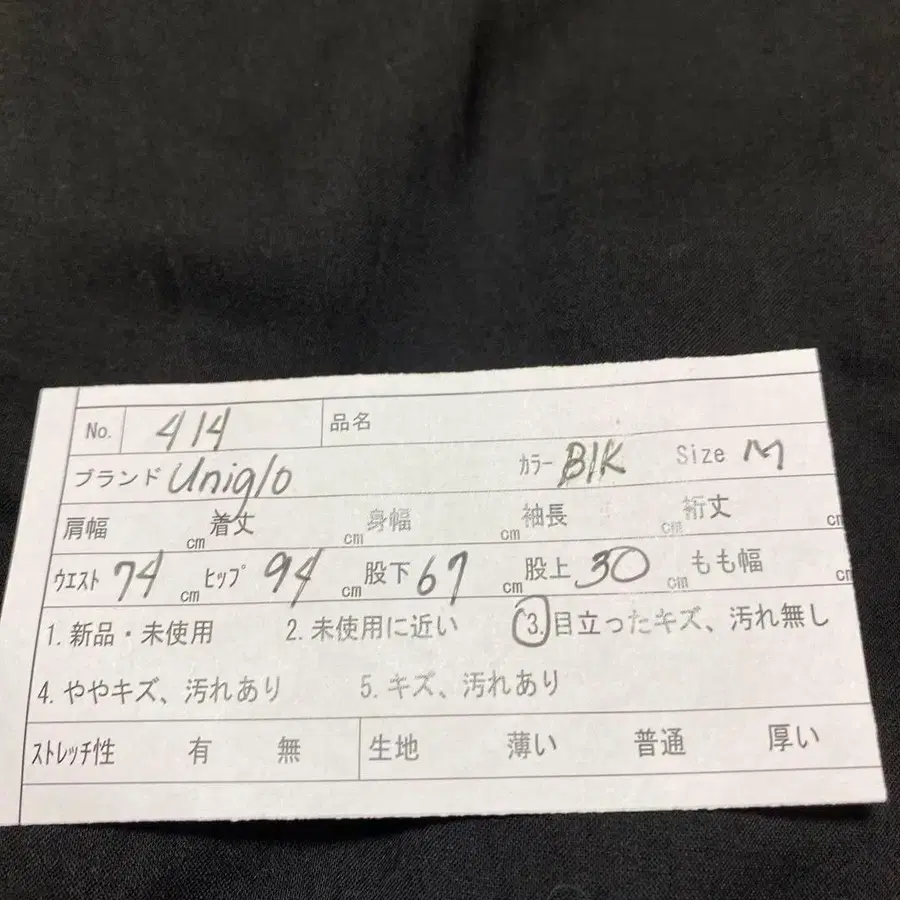 No. 414 品名
ブランド Uniglo カラー BlK Size M
肩幅 cm 着丈 cm 身幅 cm 袖長 cm 裄丈 cm
ウエスト 74 cm ヒップ 94 cm 股下 67 cm 股上 30 cm もも幅 cm
1. 新品・未使用 2. 未使用に近い 3. 目立ったキズ、汚れ無し
4. ややキズ、汚れあり 5. キズ、汚れあり
ストレッチ性 有 無 生地 薄い 普通 厚い